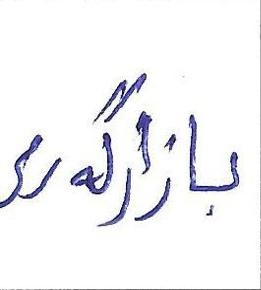 بازارگەری